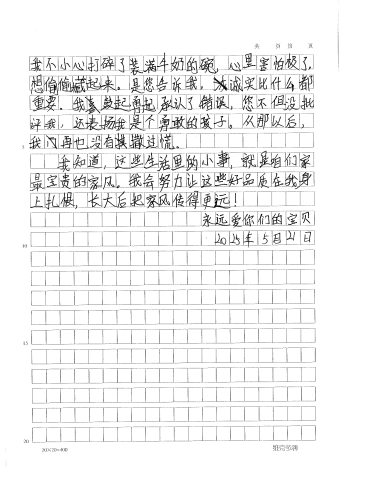 共 页 第 页
我不小心打碎了装满牛奶的碗，心里害怕极了，
想偷偷藏起来。是您告诉我，诚实比什么都
重要。我鼓起勇气承认了错误，您不但没批
评我，还表扬我是个勇敢的孩子。从那以后，
我再也没有撒过谎。
我知道，这些生活里的小事，就是咱们家
最宝贵的家风。我会努力让这些好品质在我身
上扎根，长大后把家风传得更远！
永远爱你们的宝贝
2025年5月21日
5
10
15
20
20×20=400